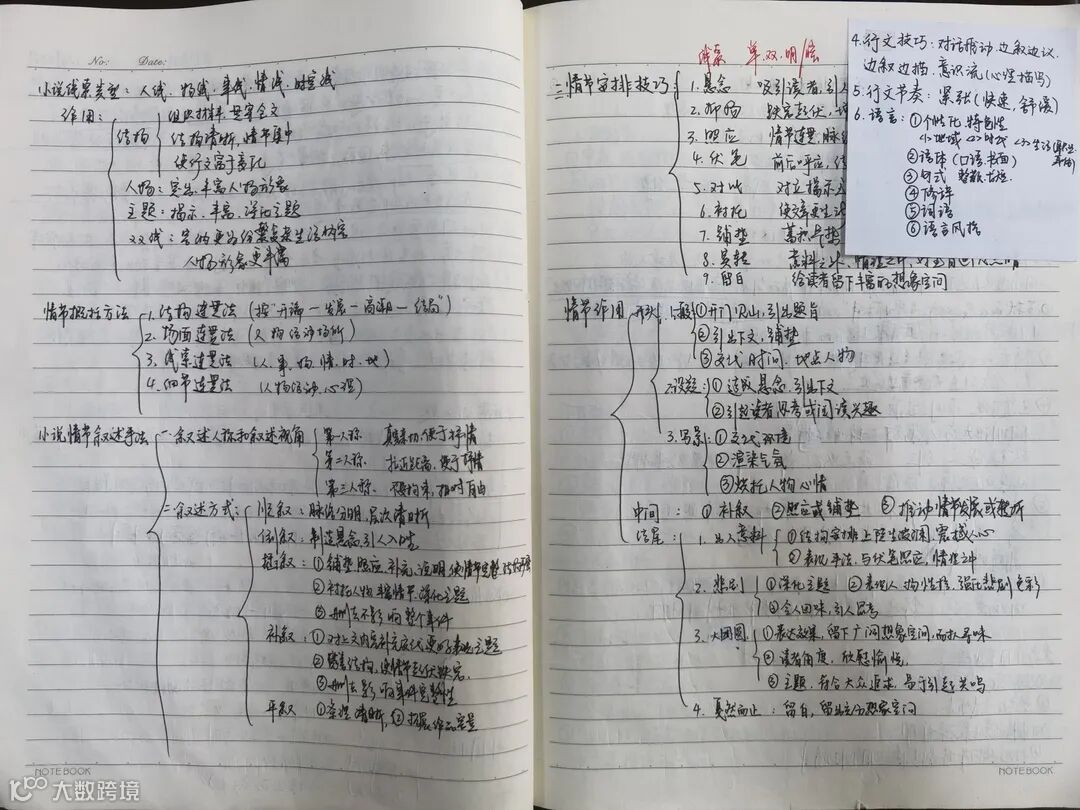 No:    Date:
小说线索类型：人线、物线、事线、情线、时空线
作用：
结构
组织材料、贯穿全文
结构清晰，情节集中
使行文富于变化
人物：突出、丰富人物形象
主题：揭示、丰富、深化主题
双线：
人物形象更丰富
情节概括方法
1. 结构连贯法（按"开端—发展—高潮—结局"）
2. 场面连贯法（人物活动场所）
3. 线索连贯法（人、事、物、情、时、地）
4. 细节连贯法（人物活动、心理）
小说情节叙述手法
一、叙述人称和叙述视角
第一人称 真实亲切，便于抒情
第二人称、拉近距离，便于抒情
第三人称、不受拘束，相对自由
二、叙述方式：
顺叙：脉络分明，层次清晰
倒叙：制造悬念，引人入胜
插叙：①铺垫照应、补充、说明，使情节完整
②衬托人物、丰富情节、深化主题
③删去不影响整个事件
补叙：①对上文内容补充交代，更好表现主题
②完善结构，使情节起伏跌宕
③删去影响事件完整性
平叙 ①条理清晰，②扩展作品容量
NOTEBOOK
线索 单、双、明/暗
三、情节安排技巧：
1. 悬念 吸引读者，引人
2. 抑扬 跌宕起伏，
3. 照应 情节连贯，脉络
4. 伏笔 前后呼应，
5. 对比 对立揭示
6. 衬托 使文章更生
7. 铺垫 蓄积气势
8. 突转 意料之外，情理之中，
9. 留白 给读者留下丰富的想象空间
4. 行文技巧：对话推动、边叙边议、
边叙边描、意识流（心理描写）
5. 行文节奏：紧张（快速、舒缓）
6. 语言：①个性化、特色性
<1>地域 <2>时代 <3>生活
②语体（口语、书面）
③句式 整散、长短
④修辞
⑤词语
⑥语言风格
情节作用
开头
1.一般①开门见山，引出题旨
②引出下文，铺垫
③交代时间、地点人物
2.设疑：①造成悬念，引出下文
②引起读者思考或阅读兴趣
3.写景：①交代环境
②渲染气氛
③烘托人物心情
中间：①补叙 ②照应或铺垫 ③推动情节发展或转折
结尾：
1. 出人意料 ①结构安排上陡生波澜，震撼人心
②表现手法，与伏笔照应，情理之中
2. 悲剧 ①深化主题 ②表现人物性格，强化悲剧色彩
③令人回味，引人思考
3. 大团圆 ①表达效果，留下广阔想象空间，耐人寻味
②读者角度，欣慰愉悦，
③主题，符合大众追求，易于引起共鸣
4. 戛然而止：留白，留出想象空间
NOTEBOOK
大数跨境